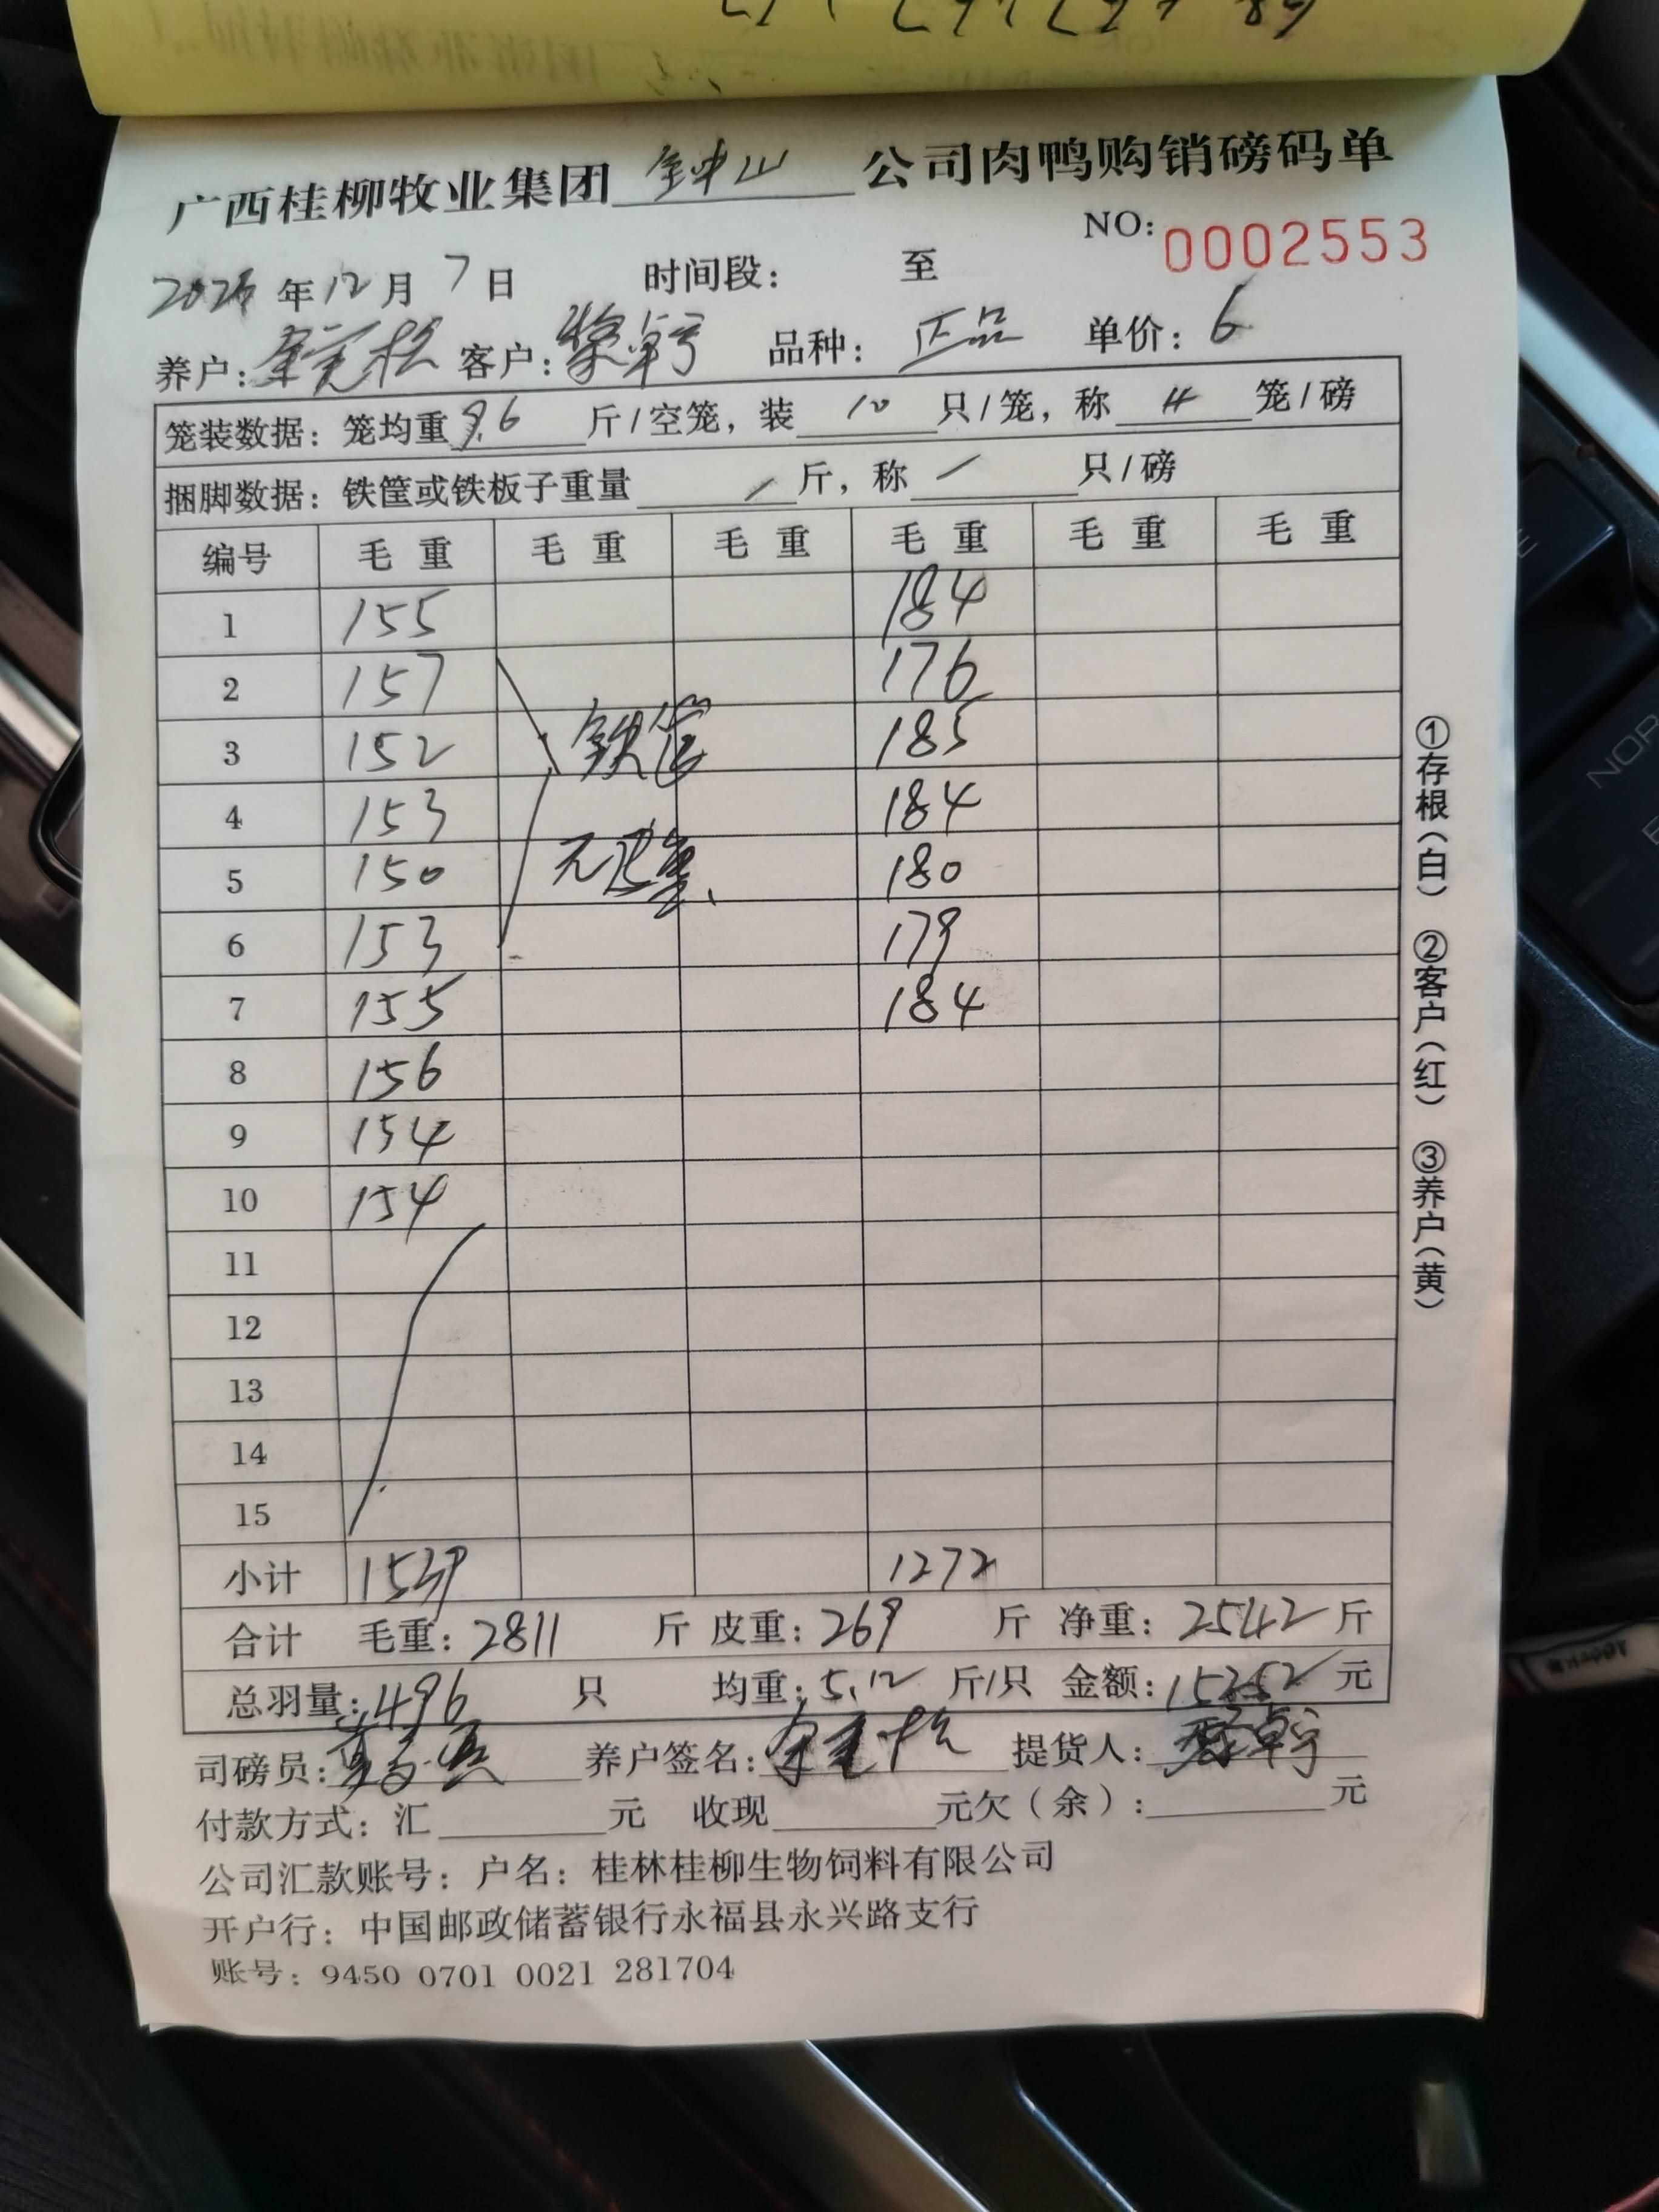 广西桂柳牧业集团 钟山 公司肉鸭购销磅码单
NO: 0002553
年 12 月 7 日 时间段： 至
养户： 客户：黎卓宇 品种：正品 单价：6
笼装数据：笼均重 9.6 斤/空笼，装 10 只/笼，称 4 笼/磅
捆脚数据：铁筐或铁板子重量 / 斤，称 / 只/磅
编号 毛重 毛重 毛重 毛重 毛重 毛重
1 155 184
2 157 176
3 152 铁笼 185
4 153 184
5 150 无皮重 180
6 153 179
7 155 184
8 156
9 154
10 154
11
12
13
14
15
小计 1539 1272
合计 毛重：2811 斤 皮重：269 斤 净重：2542 斤
总羽量：496 只 均重：5.12 斤/只 金额：15252 元
司磅员： 养户签名： 提货人：黎卓宇
付款方式：汇 元 收现 元欠（余）： 元
公司汇款账号：户名：桂林桂柳生物饲料有限公司
开户行：中国邮政储蓄银行永福县永兴路支行
账号：9450 0701 0021 281704
①存根（白） ②客户（红） ③养户（黄）